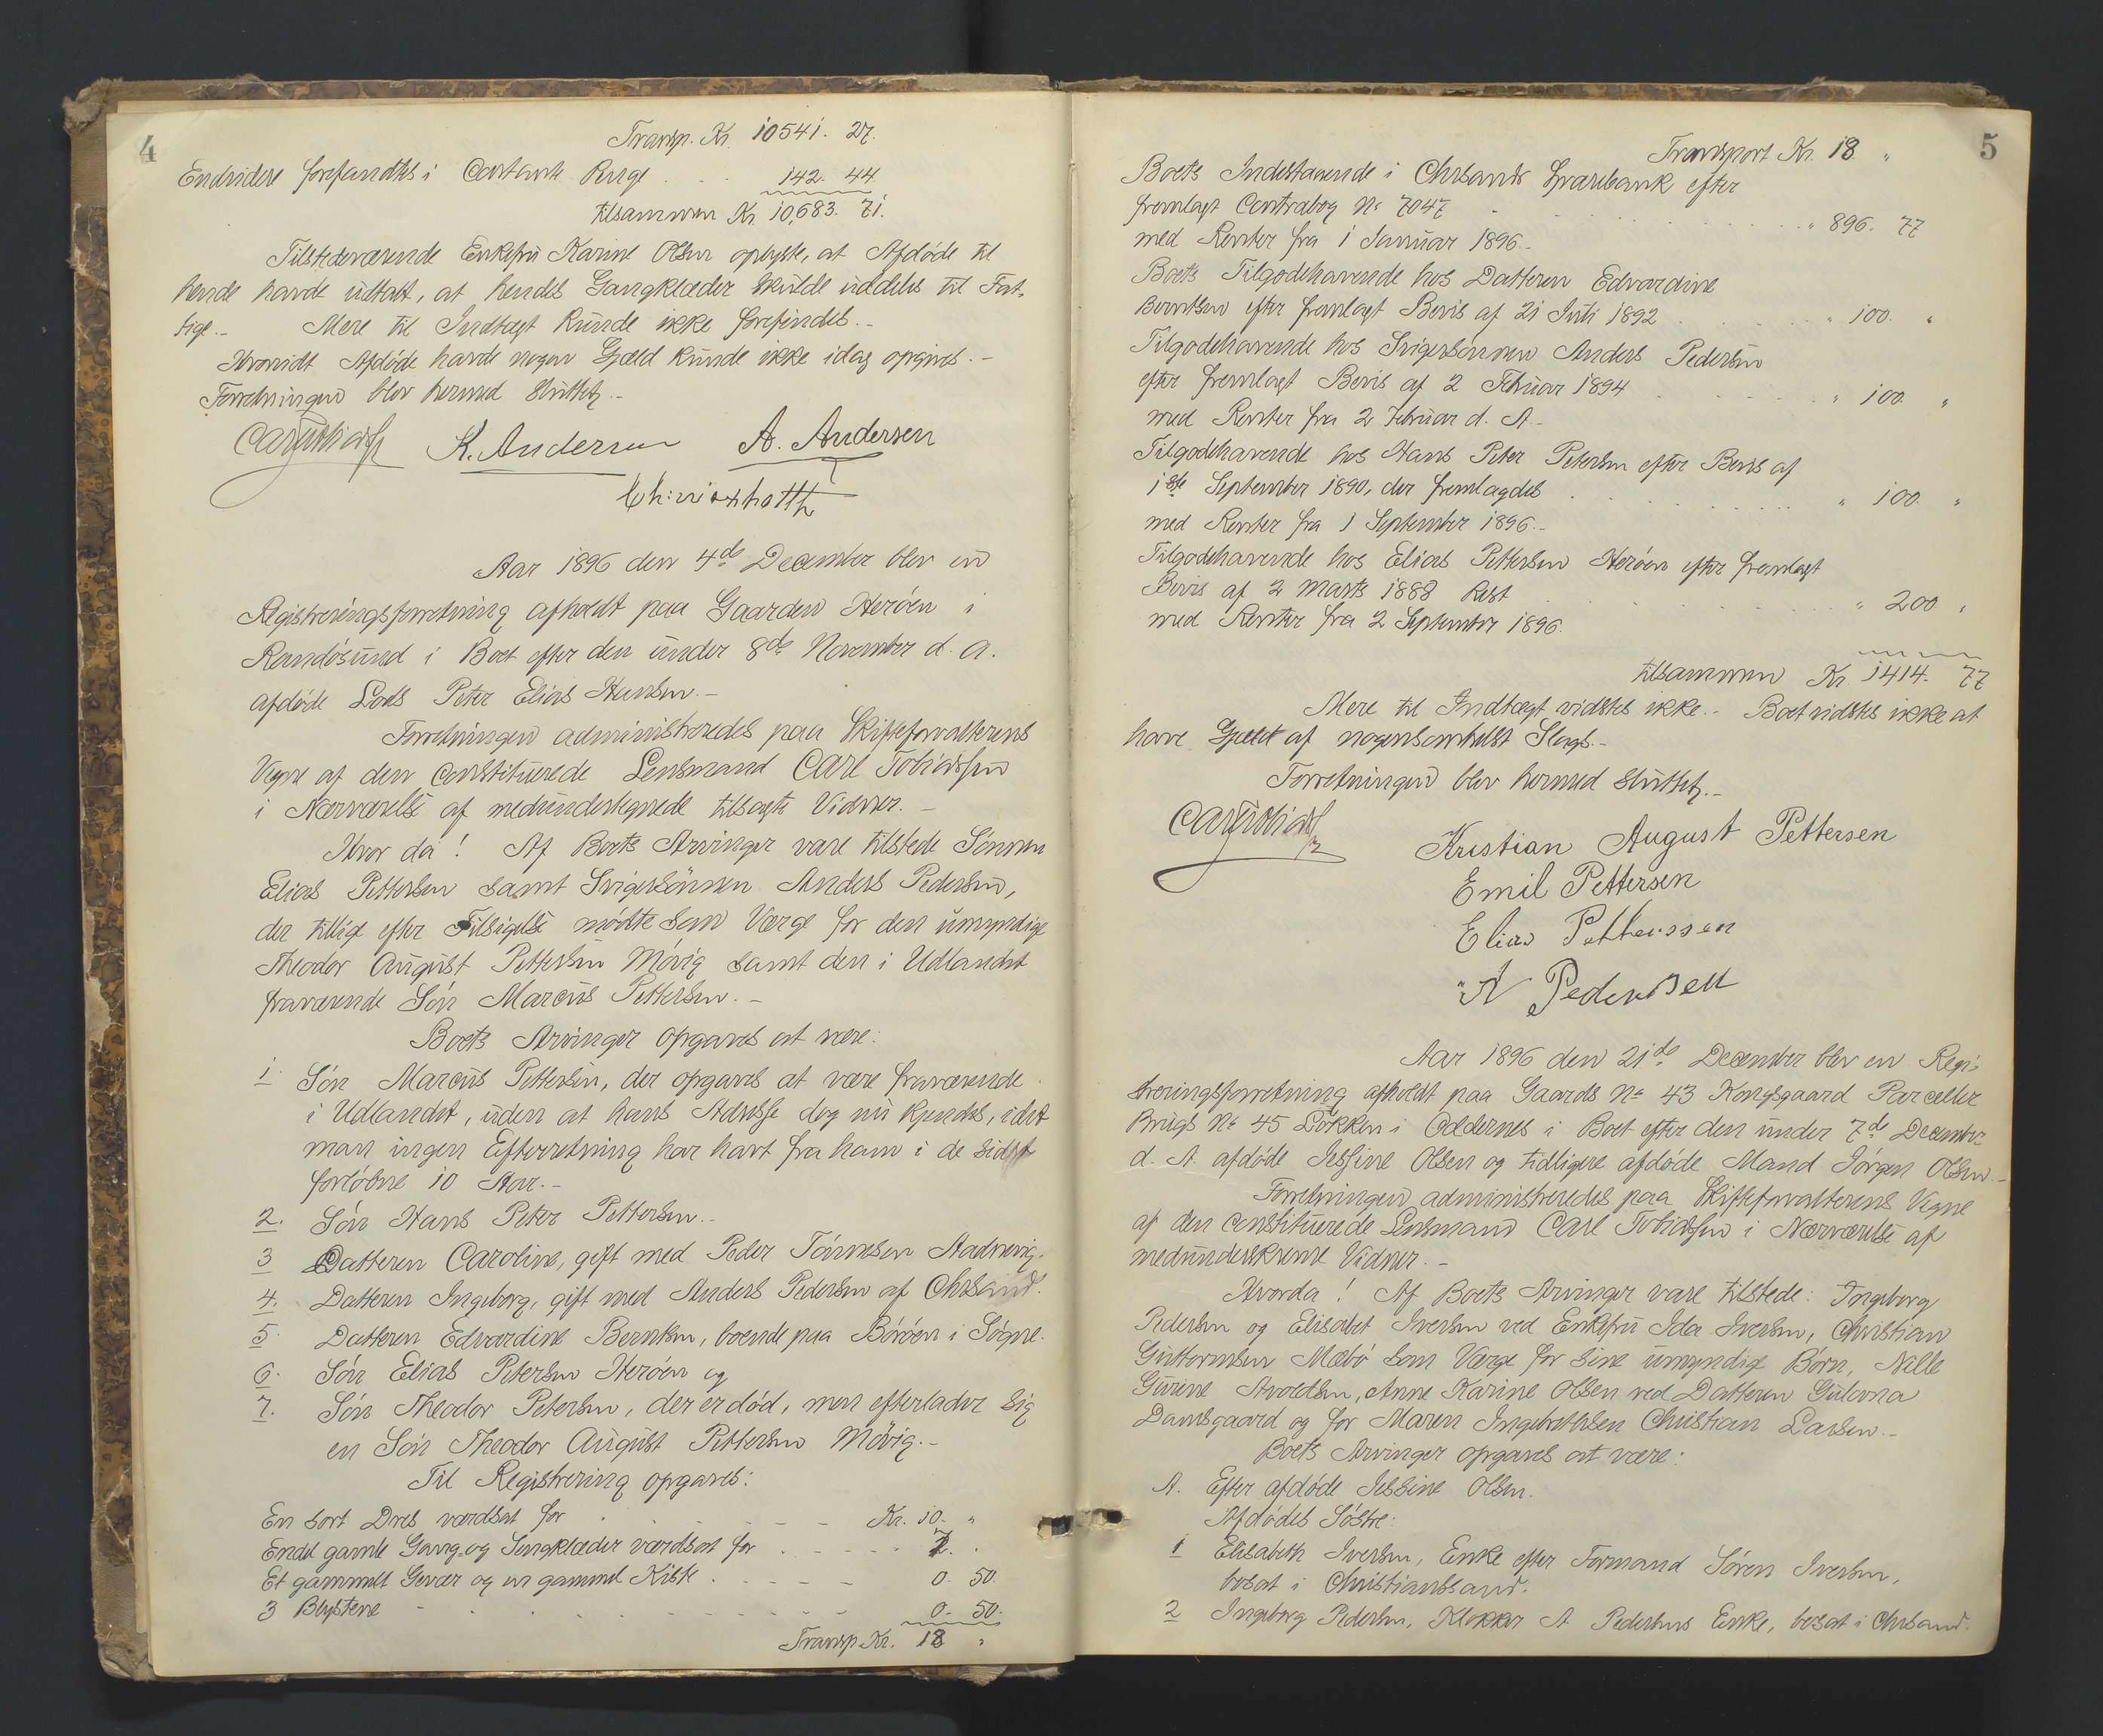 4
Transp. Kr. 10541. 27.
Endvidere forefandtes i Contante Penge . . . 142. 44
tilsammen Kr. 10,683. 71.
Tilstedeværende Enkefru Karine Olsen oplyste, at Afdøde til
hende havde udtalt, at hendes Gangklæder skulde uddeles til Fat-
tige.- Mere til Indtægt kunde ikke forefindes.-
Hvorvidt Afdøde havde nogen Gjæld kunde ikke idag opgives.-
Forretningen blev hermed sluttet.-
Carl Tobiassen K. Andersen A. Andersen
Aar 1896 den 4de December blev en
Registreringsforretning afholdt paa Gaarden Herøen i
Randøsund i Boet efter den under 8de November d. A.
afdøde Lods Peter Elias Hansen.-
Forretningen administreredes paa Skifteforvalterens
Vegne af den constituerede Lensmand Carl Tobiassen
i Nærværelse af medundertegnede tilsagte Vidner.-
Hvor da! Af Boets Arvinger vare tilstede Sønnen
Elias Pettersen samt Svigersønnen Anders Pedersen,
der tillige efter Tilsigelse mødte som Værge for den umyndige
Theodor August Pettersen Møvig samt den i Udlandet
fraværende Søn Marcus Pettersen.-
Boets Arvinger opgaves at være:
1. Søn Marcus Pettersen, der opgaves at være fraværende
i Udlandet, uden at hans Adresse dog nu kjendes, idet
man ingen Efterretning har havt fra ham i de sidst
forløbne 10 Aar.-
2. Søn Hans Peter Pettersen.-
3 Datteren Caroline, gift med Peder Tørresen Aadnevig.
4. Datteren Ingeborg, gift med Anders Pedersen af Chrsand.
5. Datteren Edvardine Berntsen, boende paa Borøen i Søgne.
6. Søn Elias Petersen Herøen og
7. Søn Theodor Petersen, der er død, men efterlader sig
en Søn Theodor August Pettersen Møvig.-
Til Registrering opgaves:
En sort Dres værdsat for . . . Kr. 10. "
Endel gamle Gang- og Sengklæder værdsat for . . . 7. "
Et gammelt Gevær og en gammel Kiste . . . 0. 50.
3 Blystene . . . 0. 50.
Transp. Kr. 18 "
5
Transport Kr. 18 "
Boets Indestaaende i Chrsands Sparebank efter
fremlagt Contrabog No 7047 . . . " 896. 77
med Renter fra 1 Januar 1896.-
Boets Tilgodehavende hos Datteren Edvardine
Berntsen efter fremlagt Bevis af 21 Juli 1892 . . . " 100. "
Tilgodehavende hos Svigersønnen Anders Pedersen
efter fremlagt Bevis af 2 Februar 1894 . . . " 100. "
med Renter fra 2 Februar d. A.-
Tilgodehavende hos Hans Peter Petersen efter Bevis af
1ste September 1890, der fremlagdes . . . " 100. "
med Renter fra 1 September 1896.-
Tilgodehavende hos Elias Pettersen Herøen efter fremlagt
Bevis af 2 Marts 1888 Rest . . . " 200 "
med Renter fra 2 September 1896.
tilsammen Kr. 1414. 77
Mere til Indtægt vidstes ikke.- Boet vidstes ikke at
have Gjæld af nogensomhelst Slags.-
Forretningen blev hermed sluttet.-
Carl Tobiassen
Kristian August Pettersen
Emil Pettersen
Elias Pettersen
A Pedersen
Aar 1896 den 21de December blev en Regi-
streringsforretning afholdt paa Gaards No 43 Kongsgaard Parceller
Brugs No 45 Løkken i Oddernes i Boet efter den under 7de December
d. A. afdøde Jessine Olsen og tidligere afdøde Mand Jørgen Olsen.-
Forretningen administreredes paa Skifteforvalterens Vegne
af den constituerede Lensmand Carl Tobiassen i Nærværelse af
medunderskrevne Vidner.-
Hvorda! Af Boets Arvinger vare tilstede: Ingeborg
Pedersen og Elisabet Iversen ved Enkefru Ida Iversen, Christian
Guttormsen Mæbø som Værge for sine umyndige Børn, Nille
Gurine Avoldsen, Anne Karine Olsen ved Datteren Gulovna
Damsgaard og for Maren Ingebrethsen Christian Larsen.-
Boets Arvinger opgaves at være:
A. Efter afdøde Jessine Olsen.
Afdødes Søstre:
1 Elisabeth Iversen, Enke efter Formand Søren Iversen,
bosat i Christianssand.
2 Ingeborg Pedersen, Klokker A Pedersens Enke, bosat i Chrsand.